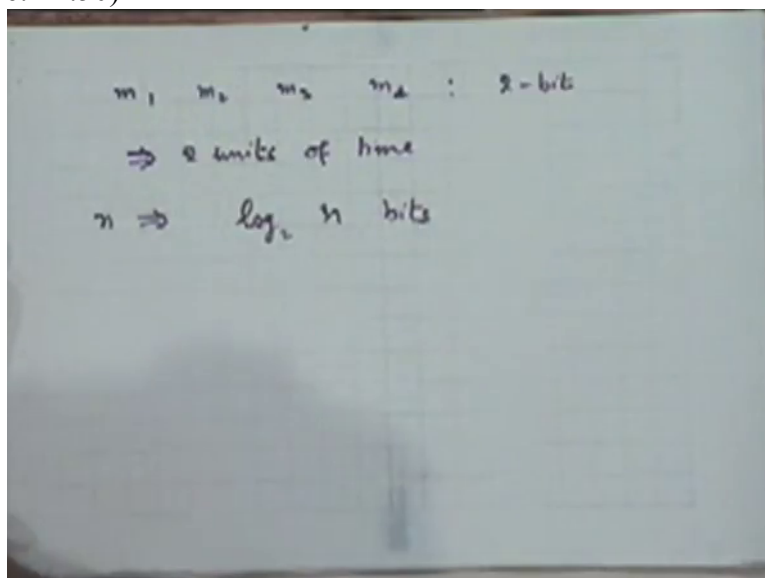 m₁ m₂ m₃ m₄ : 2-bit
⇒ 2 units of time
n ⇒ log₂ n bits